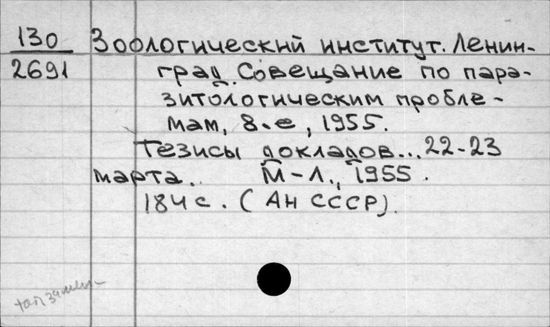 130 Зоологический институт. Ленин-
2691 град. Совещание по пара-
зитологическим пробле-
мам, 8-е, 1955.
Тезисы докладов... 22-23
марта. М-Л., 1955.
184 с. (АН СССР).